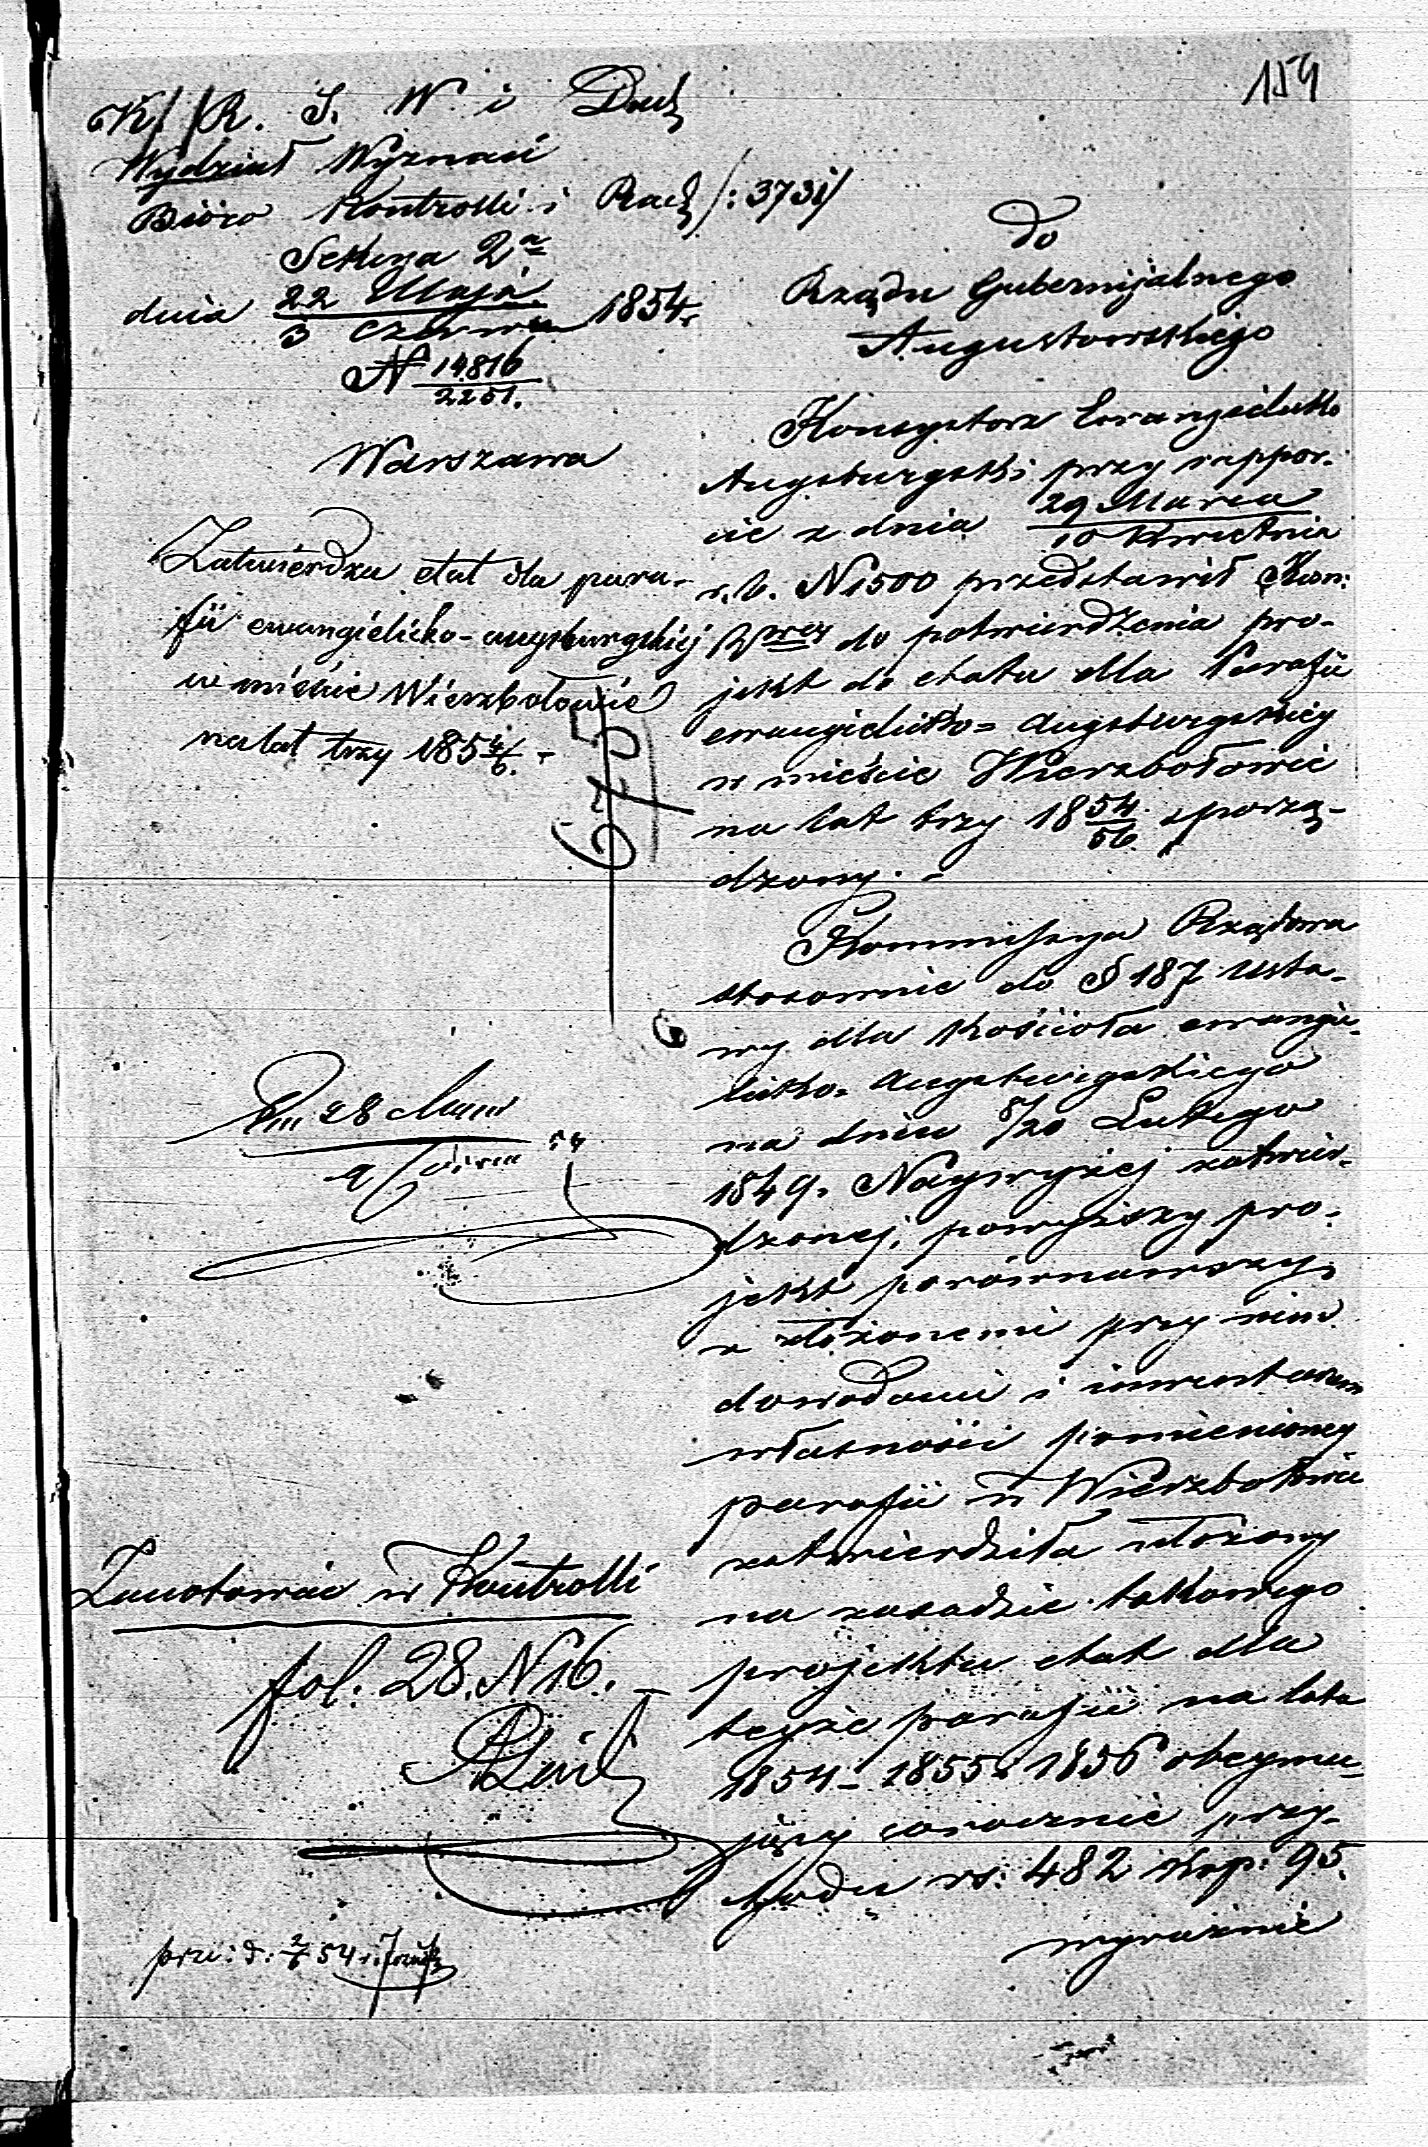 159
K. R. S. W. i Duch
Wydział Wyznań
Bióro Kontrolli i Rach /: 3731/
Sekcya 2a
dnia 22 Maja / 3 Czerwca 1854.
N 14816 / 2251.
Warszawa
Zatwierdza etat dla para-
fii ewangielicko-augsburgskiej
w mieście Wierzbołowie
na lat trzy 1854/6. -
6575
28 Maja
9 Czerwca 54
Zanotować w Kontrolli
fol: 28. N 16. -
Do
Rządu Gubernijalnego
Augustowskiego
Konsystorz Ewangielicko
Augsburgski przy rappor-
cie z dnia 29 Marca / 10 Kwietnia
r. b. N 1500 przedstawił Kom:
Rząd: do potwierdzenia pro-
jekt do etatu dla Parafii
ewangielicko=Augsburgskiey
w mieście Wierzbołowie
na lat trzy 1854/56 sporzą-
dzony. -
Kommissya Rządowa
stosownie do § 187 Usta-
wy dla Kościoła ewangie-
licko=Augsburgskiego
na dniu 8/20 Lutego
1849. Naywyżej zatwier-
dzonej, powyższy pro-
jekt porównawszy
z złożonemi przy nim
dowodami i inwentarzem
własności pomienioney
parafii w Wierzbołowie
zatwierdziła ułożony
na zasadzie takowego
projektu etat dla
teyże parafii na lata
1854 - 1855 i 1856 obeymu-
jący corocznie przy-
chodu rs: 482 kop: 95.
wyraźnie